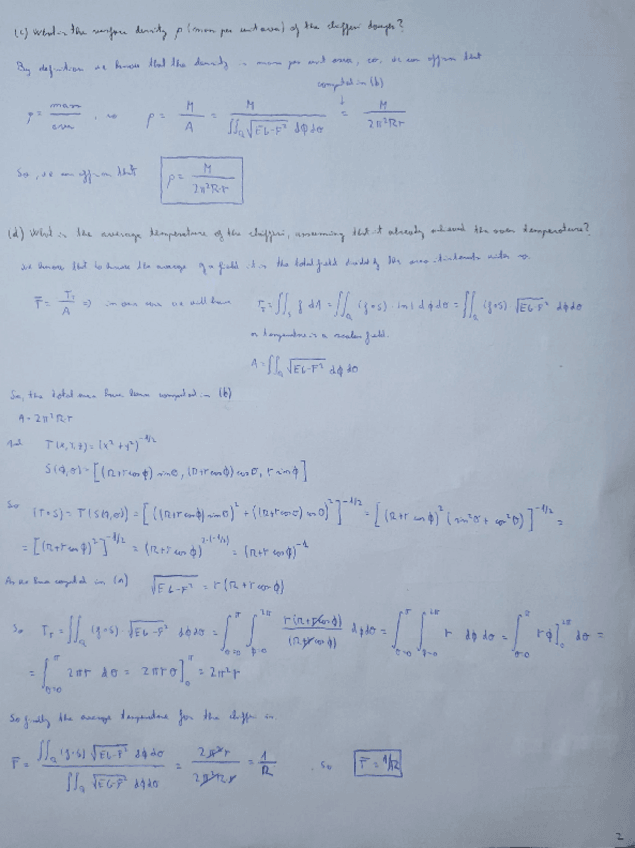 (c) What is the surface density ρ (mass per unit area) of the chifferi dough?
By definition we know that the density is mass per unit area, so, we can affirm that
computed in (b)
ρ = mass/area, so ρ = M/A = M/∬_Q √(EG-F²) dϕdσ = M/2π²Rr
So, we can affirm that ρ = M/2π²R·r
(d) What is the average temperature of the chifferi, assuming that it already achieved the oven temperature?
We know that to know the average of a field it is the total field divided by the area
T̄ = T_T/A ⇒ in our case we will have T_T = ∬_S f dA = ∬_Q (f∘S)·|n| dϕdσ = ∬_Q (f∘S)·√(EG-F²) dϕdσ
as temperature is a scalar field.
A = ∬_Q √(EG-F²) dϕdσ
So, the total area have been computed in (b)
A = 2π²R·r
And T(x,y,z) = (x²+y²)^(-1/2)
S(ϕ,σ) = [(R+r cos ϕ) sin σ, (R+r cos ϕ) cos σ, r sin ϕ]
So (T∘S) = T(S(ϕ,σ)) = [((R+r cos ϕ) sin σ)² + ((R+r cos ϕ) cos σ)²]^(-1/2) = [(R+r cos ϕ)² (sin²σ + cos²σ)]^(-1/2) =
= [(R+r cos ϕ)²]^(-1/2) = (R+r cos ϕ)^(2·(-1/2)) = (R+r cos ϕ)^(-1)
As we have computed in (a) √(EG-F²) = r(R+r cos ϕ)
So T_T = ∬_Q (f∘S)·√(EG-F²) dϕdσ = ∫_(σ=0)^π ∫_(ϕ=0)^(2π) r(R+r cos ϕ)/(R+r cos ϕ) dϕdσ = ∫_(σ=0)^π ∫_(ϕ=0)^(2π) r dϕ dσ = ∫_(σ=0)^π rϕ]_0^(2π) dσ =
= ∫_(σ=0)^π 2πr dσ = 2πrσ]_0^π = 2π²r
So finally the average temperature for the chifferi is
T̄ = ∬_Q (f∘S) √(EG-F²) dϕdσ / ∬_Q √(EG-F²) dϕdσ = 2π²r/2π²R·r = 1/R, so T̄ = 1/R
2